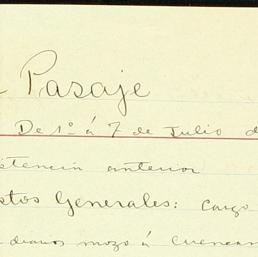 Pasaje
De 1º á 7 de Julio d
stencia anterior
stos Generales: Cargo
mozo á